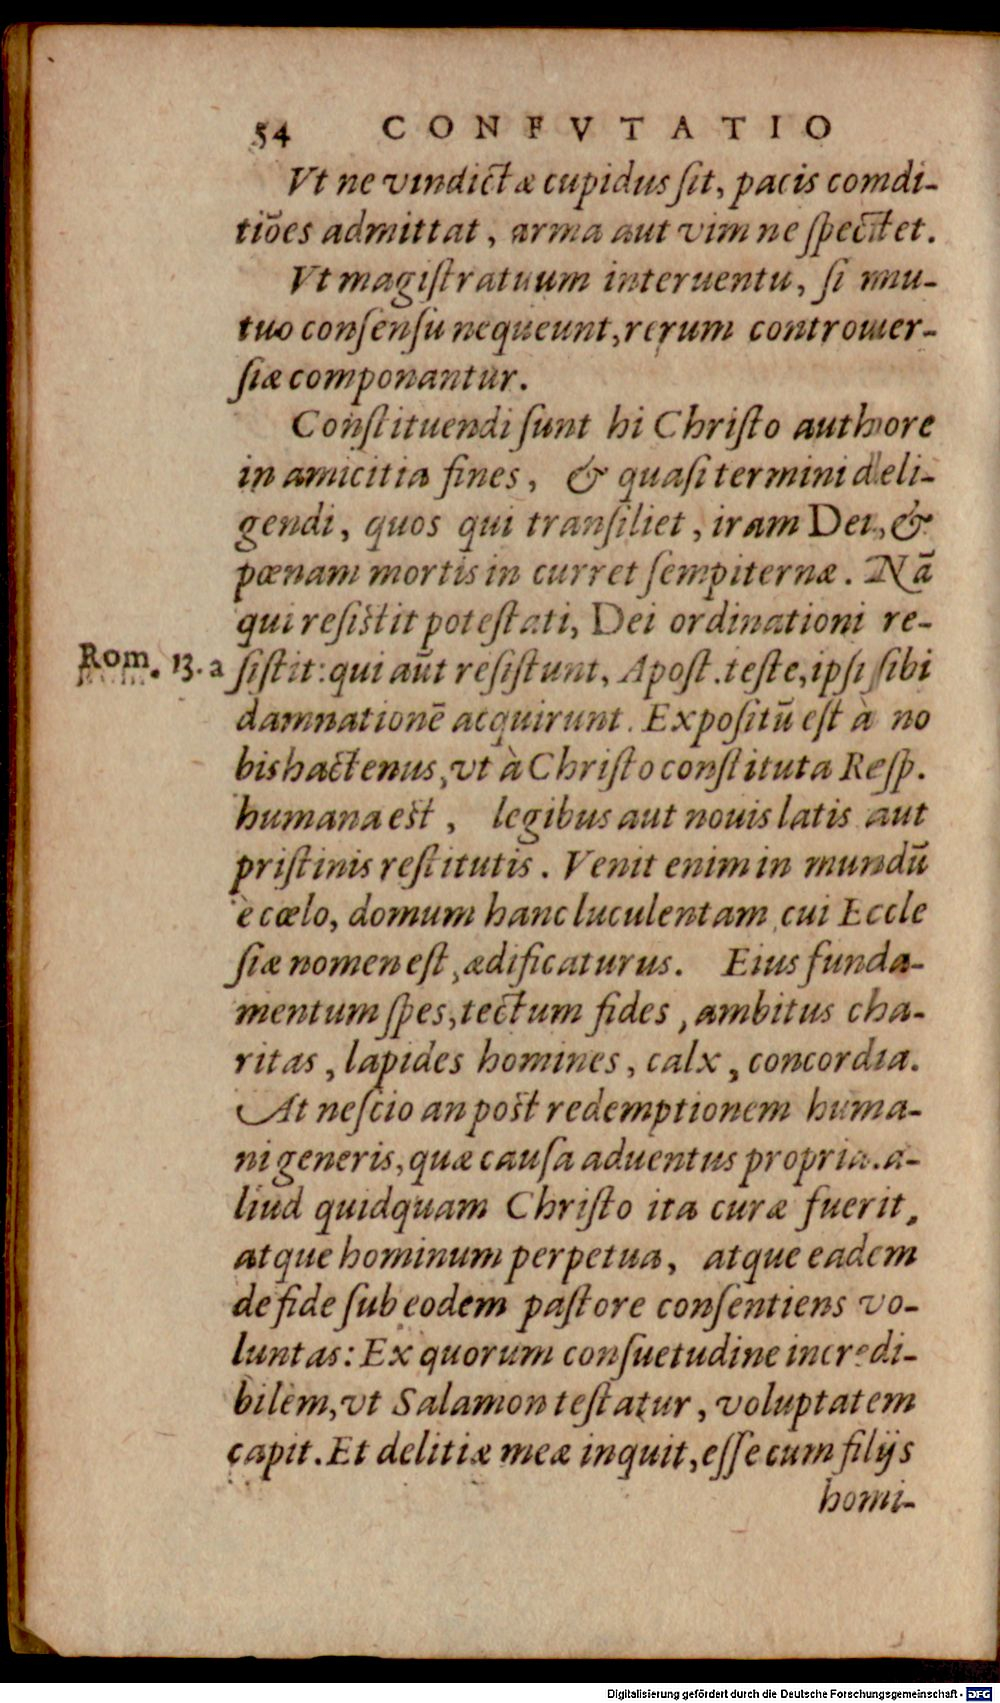 54 CONFVTATIO
Vt ne vindictæ cupidus ſit, pacis comdi-
tiões admittat, arma aut vim ne ſpectet.
Vt magiſtratuum interuentu, ſi mu-
tuo conſenſu nequeunt, rerum controuer-
ſiæ componantur.
Conſtituendi ſunt hi Chriſto authore
in amicitia fines, & quaſi termini deli-
gendi, quos qui tranſiliet, iram Dei, &
pœnam mortis in curret ſempiternæ. Nã
qui reſiſtit poteſtati, Dei ordinationi re-
Rom. 13. a ſiſtit: qui aũt reſiſtunt, Apoſt. teſte, ipſi ſibi
damnationẽ acquirunt. Expoſitũ eſt à no
bis hactenus, vt à Chriſto conſtituta Reſp.
humana eſt, legibus aut nouis latis aut
priſtinis reſtitutis. Venit enim in mundũ
è cœlo, domum hanc luculentam, cui Eccle
ſiæ nomen eſt, ædificaturus. Eius funda-
mentum ſpes, tectum fides, ambitus cha-
ritas, lapides homines, calx, concordia.
At neſcio an poſt redemptionem huma-
ni generis, quæ cauſa aduentus propria. a-
liud quidquam Chriſto ita curæ fuerit,
atque hominum perpetua, atque eadem
de fide ſub eodem paſtore conſentiens vo-
luntas: Ex quorum conſuetudine incredi-
bilem, vt Salamon teſtatur, voluptatem
capit. Et delitiæ meæ inquit, eſſe cum filijs
homi-
Digitalisierung gefördert durch die Deutsche Forschungsgemeinschaft - DFG